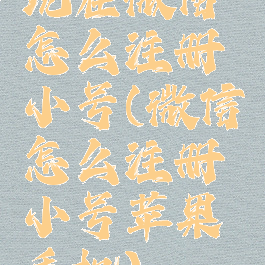 现在微信
怎么注册
小号(微信
怎么注册
小号苹果
手机)